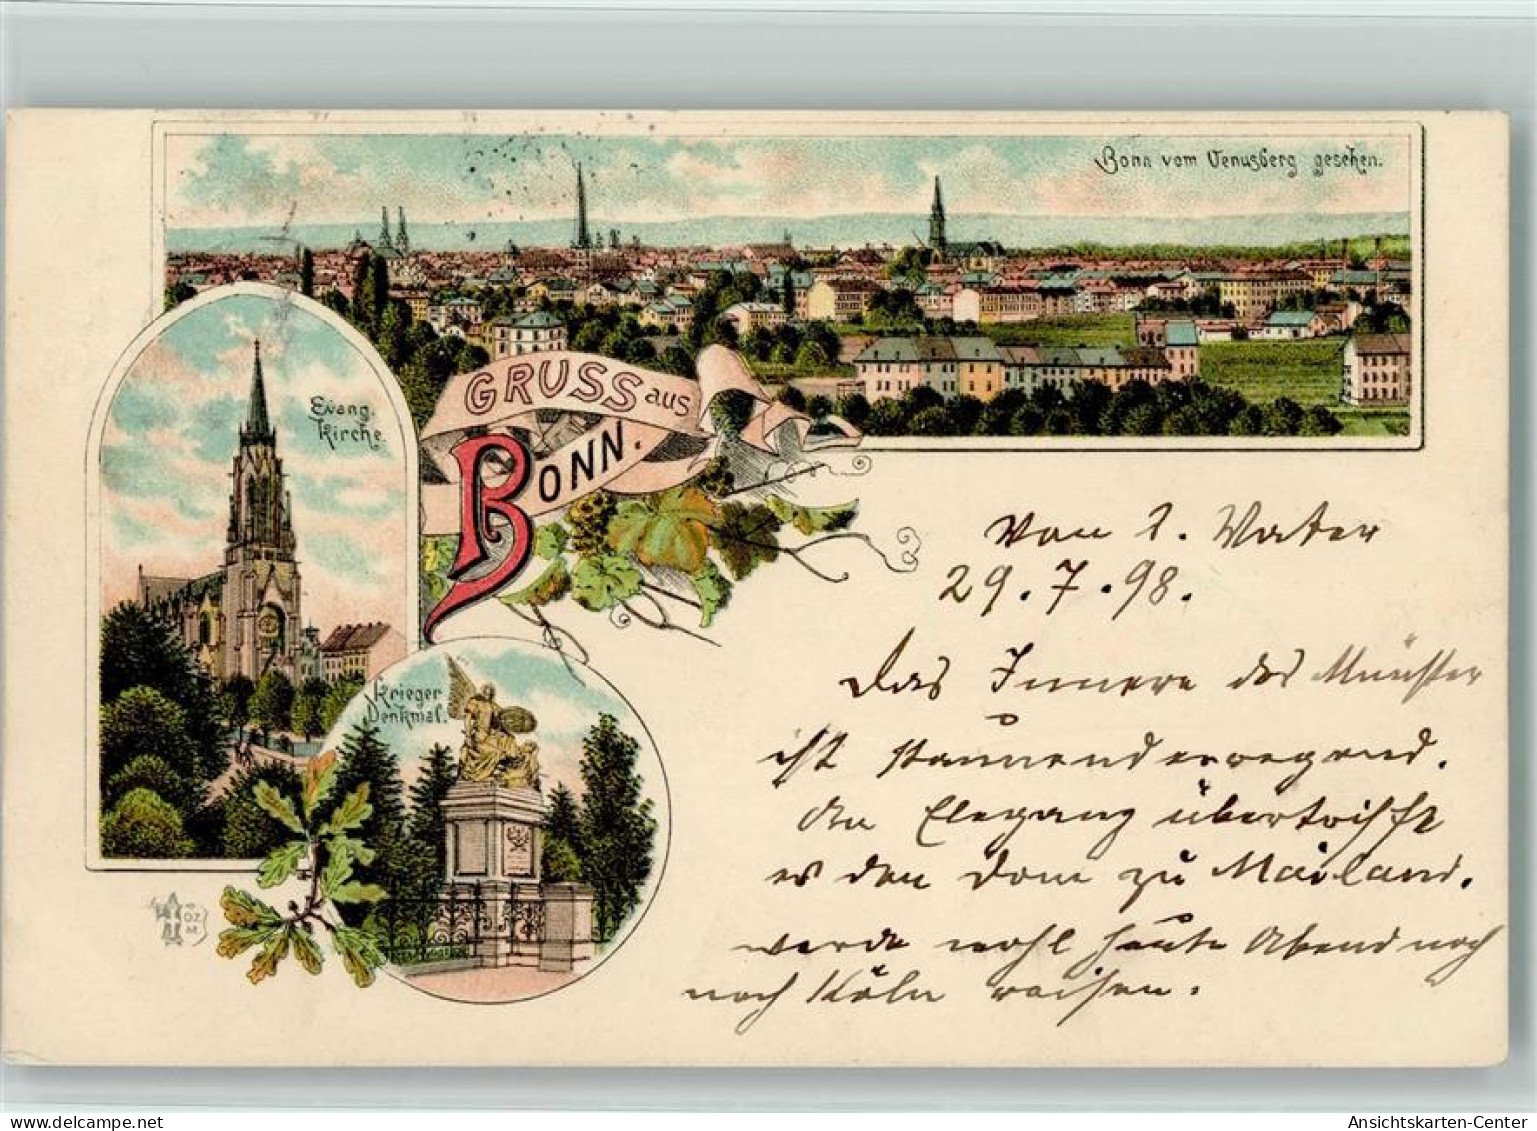 Bonn vom Venusberg gesehen.
Evang.
Kirche.
GRUSS aus
BONN.
Krieger
Denkmal.
Von 2. Vater
29.7.98.
Das Innere des Münster
ist staunenderregend.
An Eleganz übertrifft
es den Dom zu Mailand.
werde wohl heute Abend noch
nach Köln reisen.
oldthing.de
Ansichtskarten-Center